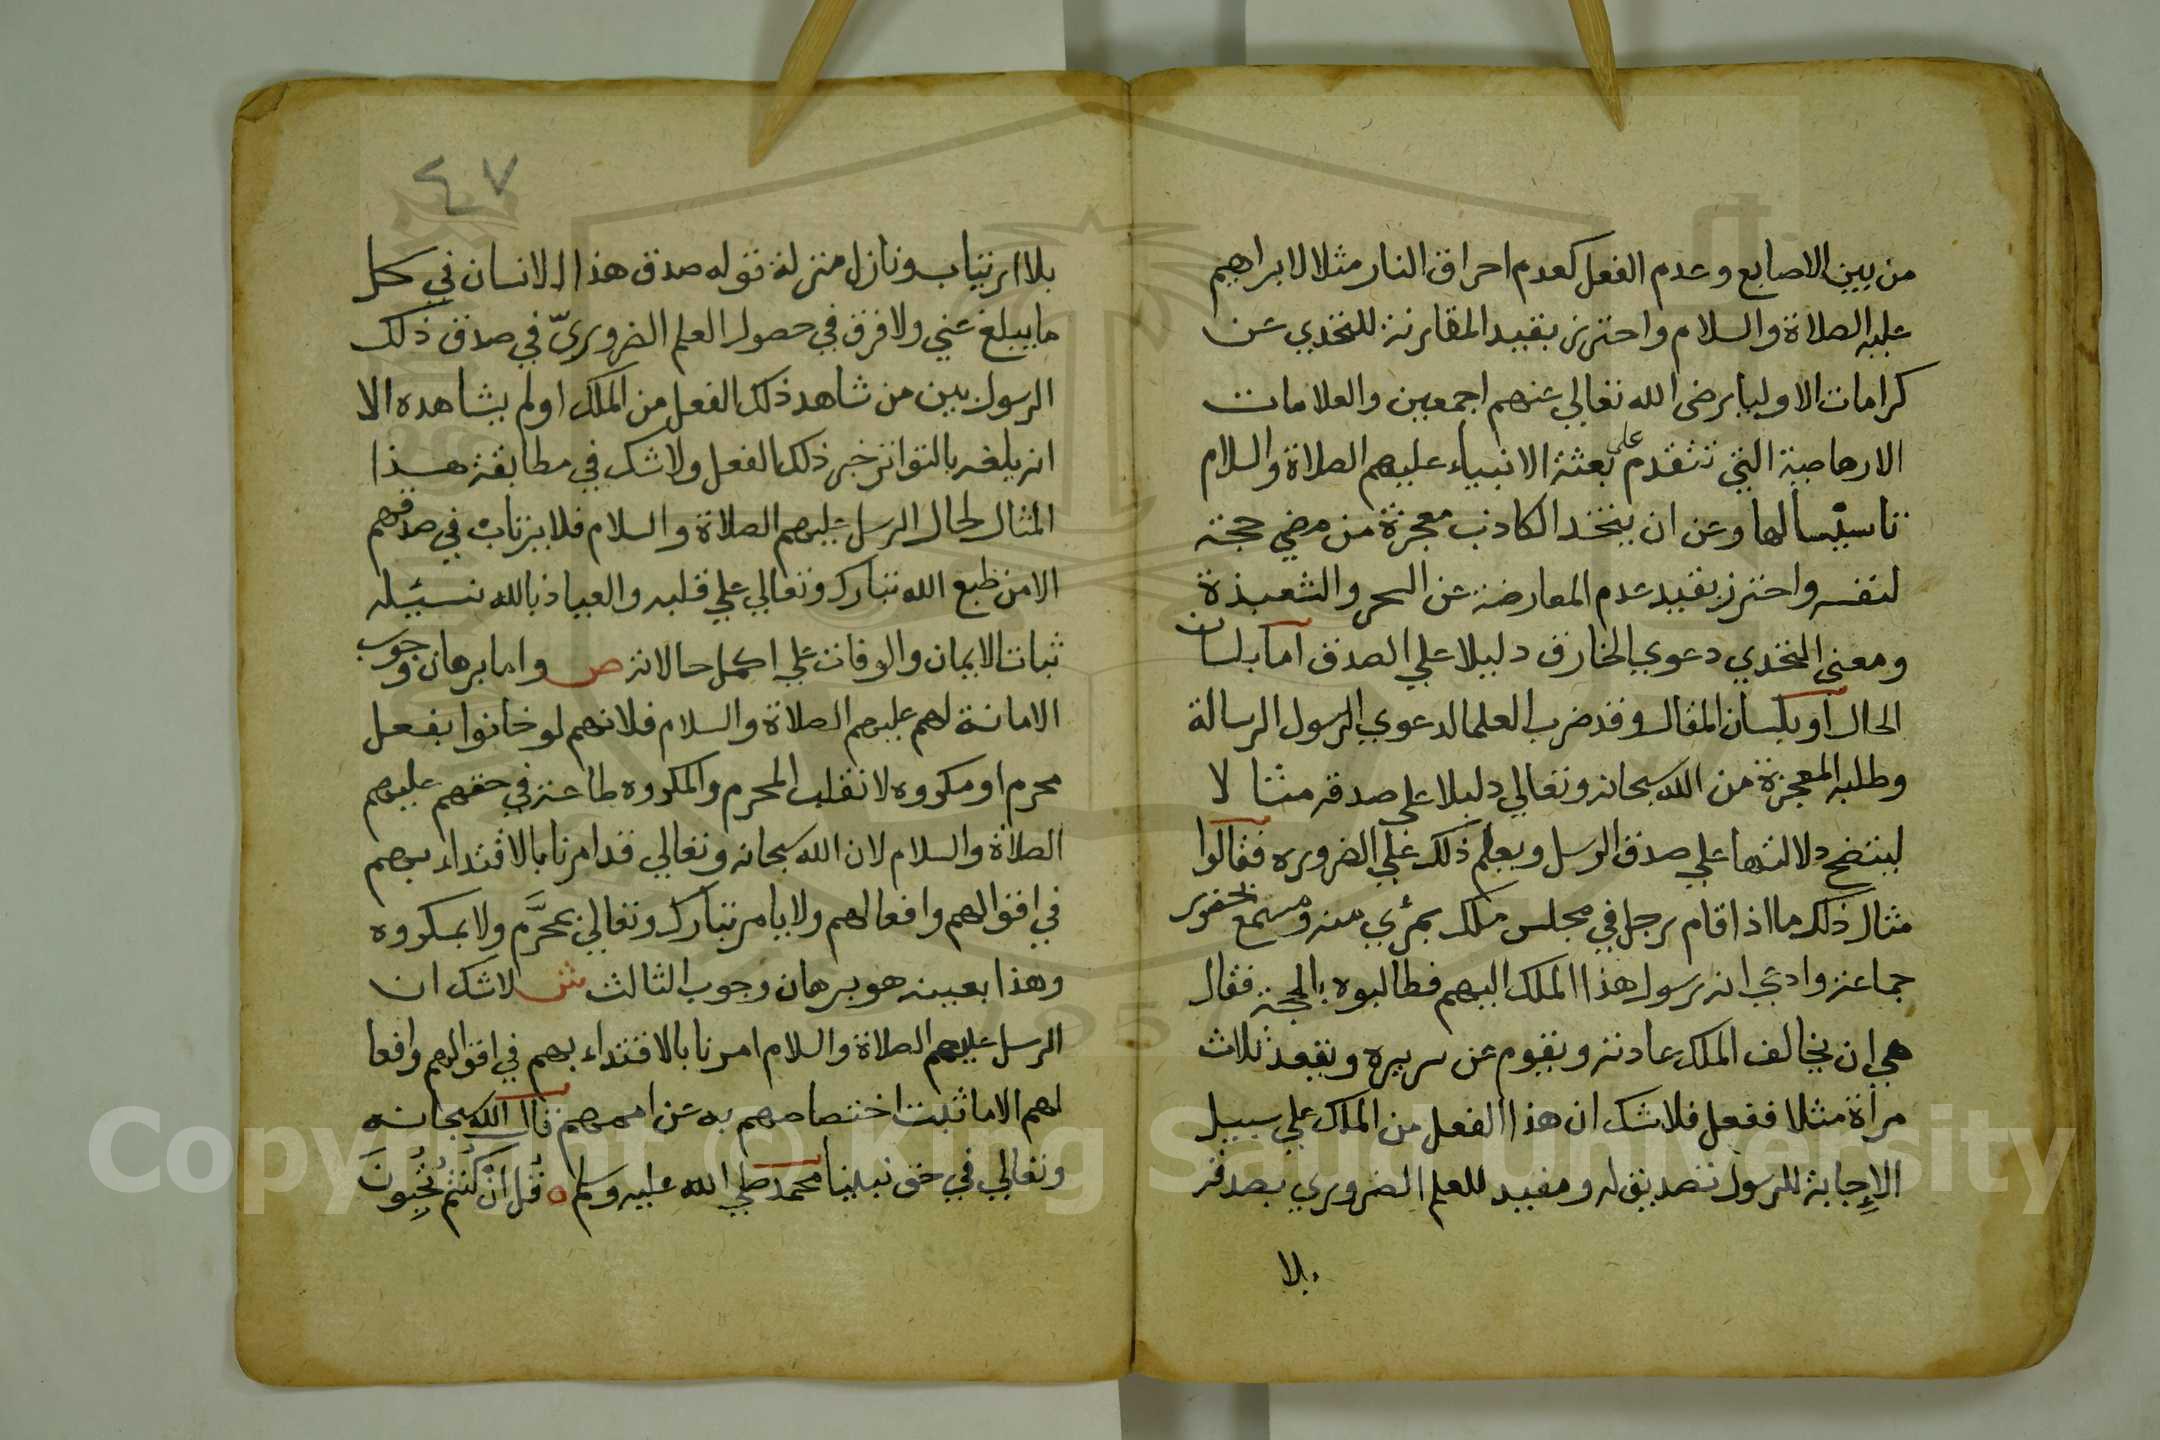 من بين الاصابع وعدم الفعل كعدم احراق النار مثلا لابراهيم
عليه الصلاة والسلام واحترز بقيد المقارنة للتحدي عن
كرامات الاوليا رضى الله تعالي عنهم اجمعين والعلامات
الارهاصية التي تتقدم على بعثة الانبياء عليهم الصلاة والسلام
تاسيسا لها وعن ان يتخذ الكاذب معجزة من مضي حجة
لنفسه واحترز بقيد عدم المعارضة عن السحر والشعبذة
ومعنى التحدي دعوي الخارق دليلا علي الصدق اما بلسان
الحال او بلسان المقال وقد ضرب العلما لدعوي الرسول الرسالة
وطلبه المعجزة من الله سبحانه وتعالي دليلا على صدقه مثالا
ليتضح دلالتها علي صدق الرسل ويعلم ذلك علي الضروره فقالوا
مثال ذلك ما اذا قام رجل في مجلس ملك بمرئي منه ومسمع بحضور
جماعة وادعي انه رسول هذا الملك اليهم فطالبوه بالحجة فقال
هي ان يخالف الملك عادته ويقوم عن سريره ويقعد ثلاث
مراة مثلا ففعل فلا شك ان هذا الفعل من الملك علي سبيل
الإجابة للرسول تصديق له ومفيد للعلم الضروري بصدقه
بلا
٤٧
بلا ارتياب ونازل منزلة قوله صدق هذا الانسان في كل
ما يبلغ عني ولا فرق في حصول العلم الضروريّ في صدق ذلك
الرسول بين من شاهد ذلك الفعل من الملك او لم يشاهده الا
انه بلغه بالتواتر خبر ذلك الفعل ولا شك في مطابقة هذا
المثال لحال الرسل عليهم الصلاة والسلام فلا يرتاب في صدقهم
الا من طبع الله تبارك وتعالي علي قلبه والعياذ بالله نسئله
ثبات الايمان والوفات علي اكمل حالاته ص واما برهان وجوب
الامانة لهم عليهم الصلاة والسلام فلانهم لو خانوا بفعل
محرم او مكروه لانقلب المحرم والمكروه طاعة في حقهم عليهم
الصلاة والسلام لان الله سبحانه وتعالي قد امرنا بالاقتداء بهم
في اقوالهم وافعالهم ولا يامر تبارك وتعالي بمحرَّم ولا بمكروه
وهذا بعينه هو برهان وجوب الثالث ش لا شك ان
الرسل عليهم الصلاة والسلام امرنا بالاقتداء بهم في اقوالهم وافعا
لهم الا ما ثبت اختصاصهم به عن اممهم قال الله سبحانه
وتعالي في حق نبينا محمد صلي الله عليه وسلم ه قُل اِنْ كُنْتُمْ تُحِبُونَ
Copyright © King Saud University
1957